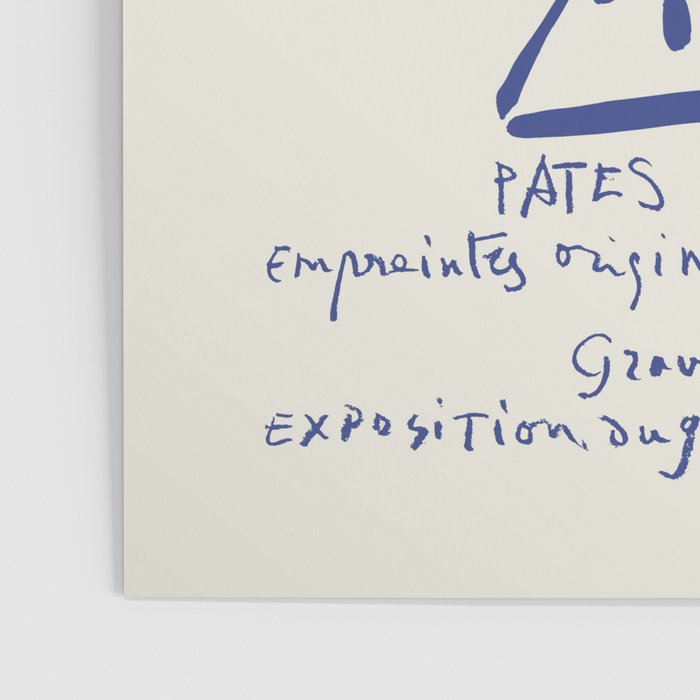 PATES
Empreintes origin
Grav
EXPOSITION DU 9